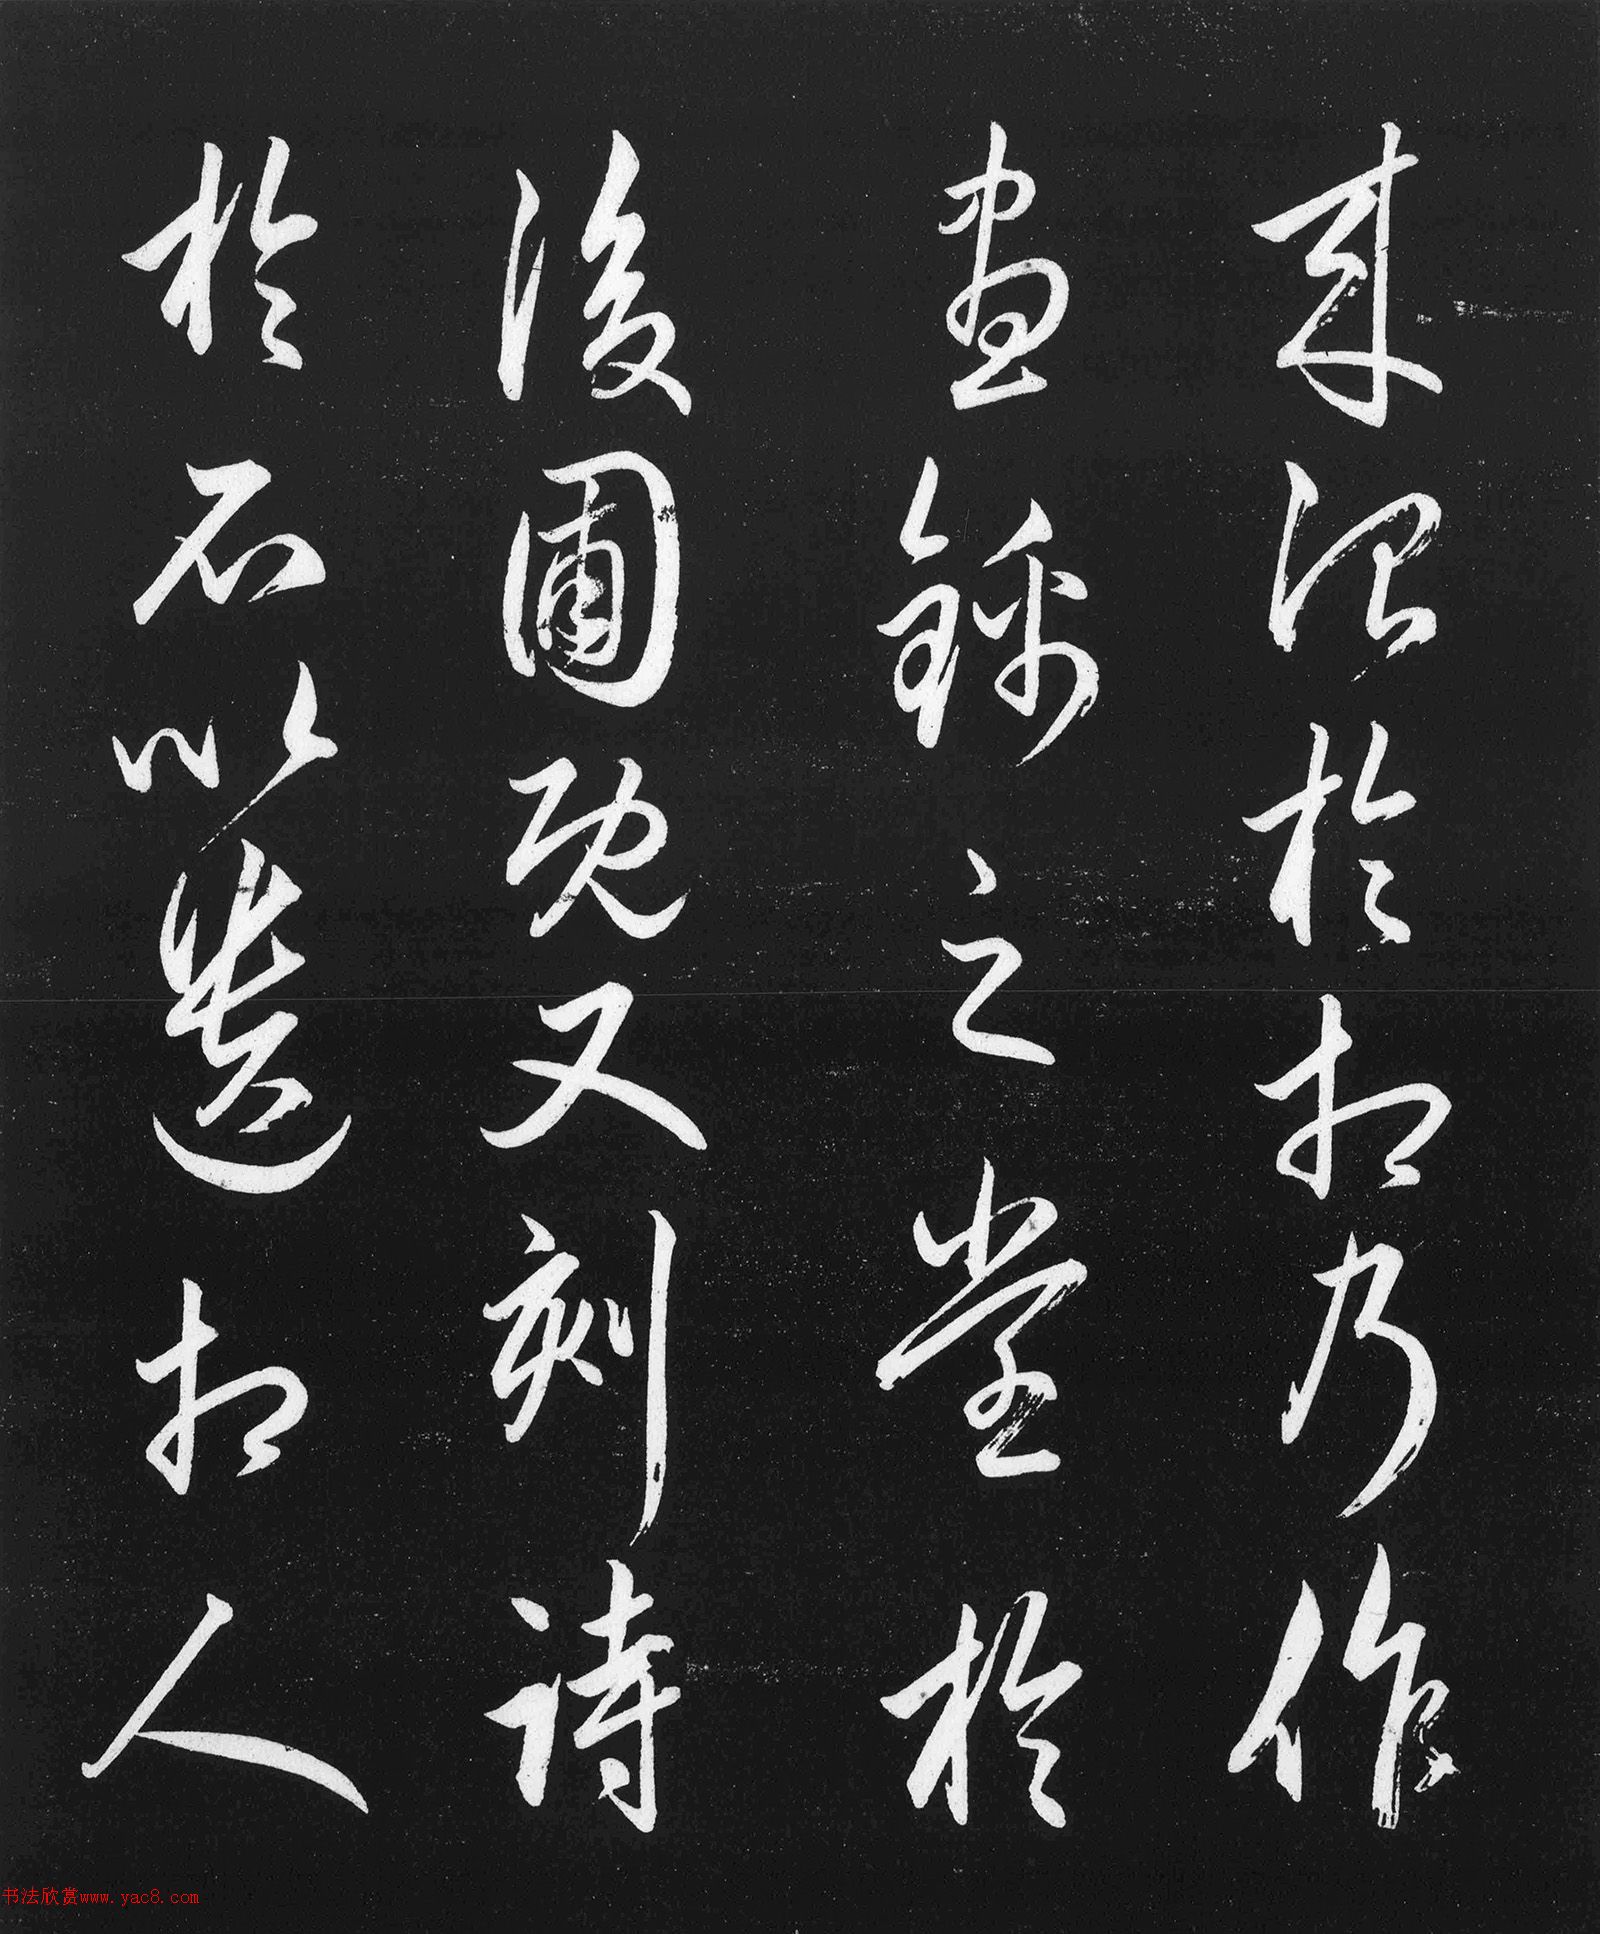 来治於相乃作
畫錦之堂於
後圃既又刻詩
於石以遺相人
书法欣赏www.yac8.com